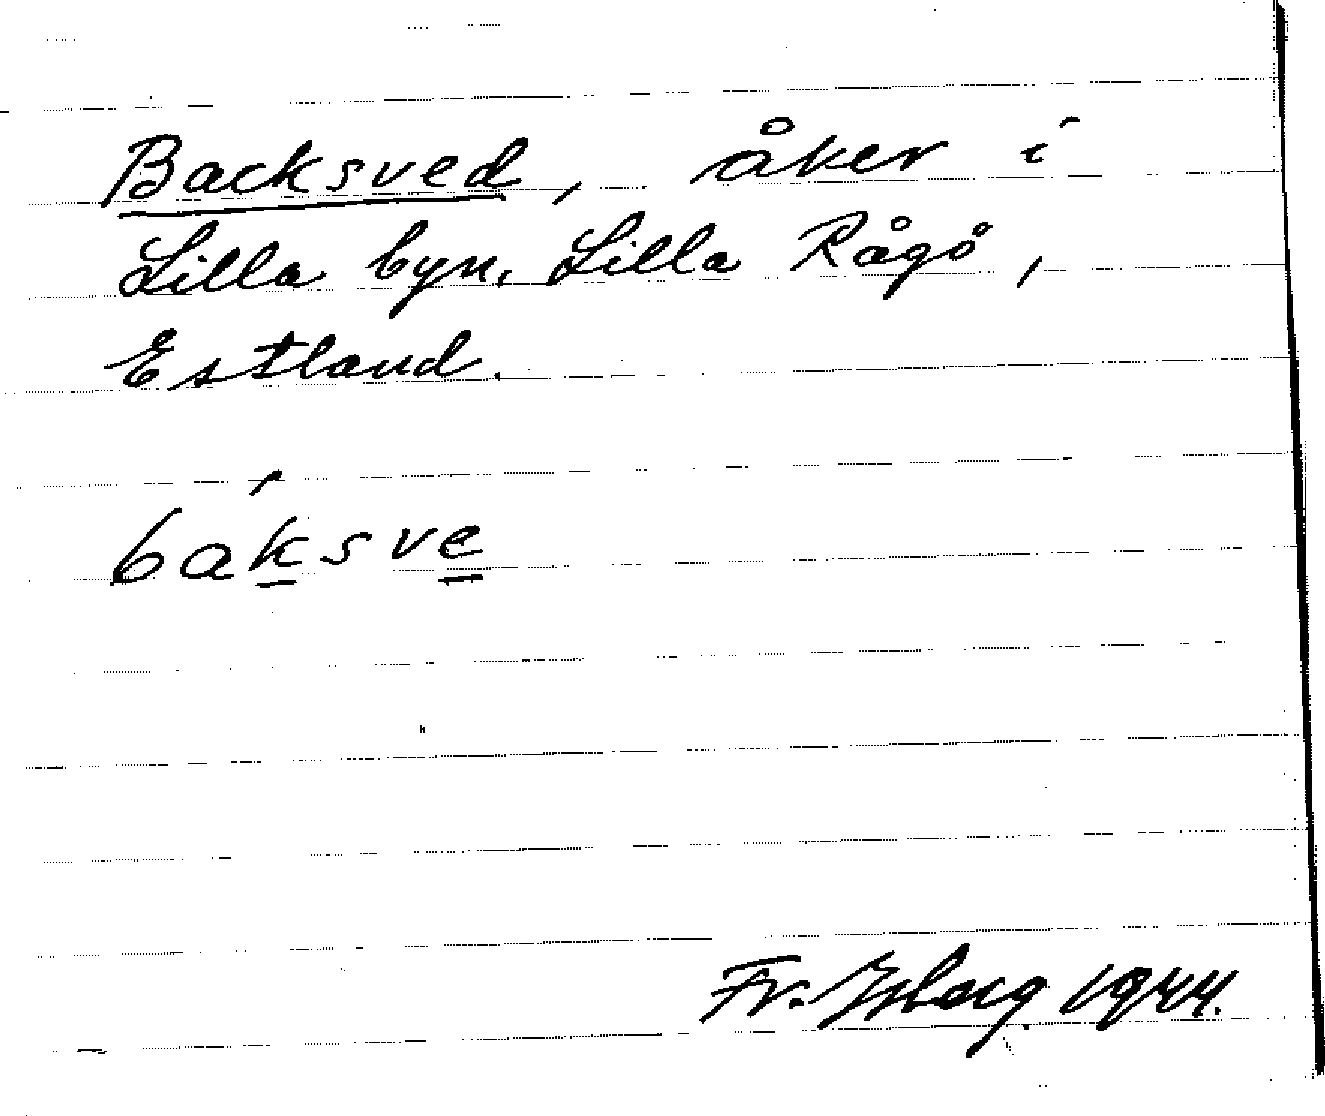 Backsved, åker i
Lilla byn, Lilla Rågö,
Estland.
báḵsve̱
Fr. Isberg 1944.